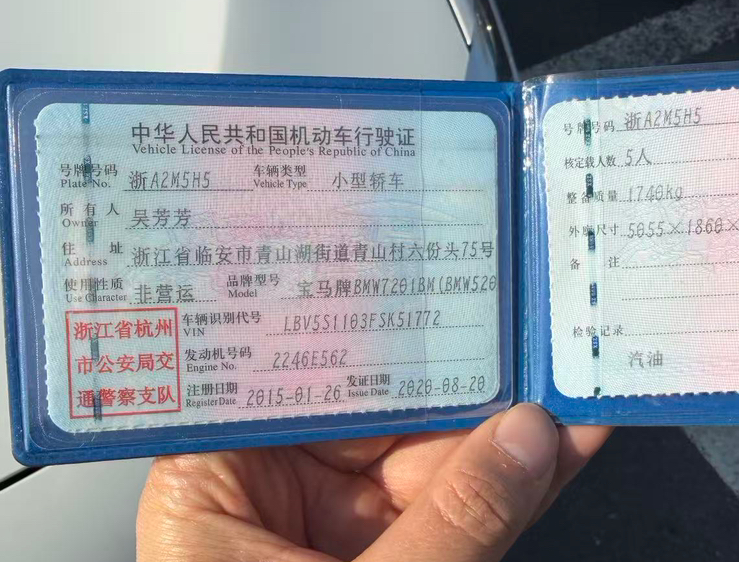 中华人民共和国机动车行驶证
Vehicle License of the People's Republic of China
号牌号码 浙A2M5H5 车辆类型 小型轿车
Plate No. Vehicle Type
所有人 吴芳芳
Owner
住址 浙江省临安市青山湖街道青山村六份头75号
Address
使用性质 非营运 品牌型号 宝马牌BMW7201BM(BMW520
Use Character Model
浙江省杭州
市公安局交
通警察支队
车辆识别代号 LBV5S1103FSK51772
VIN
发动机号码 2246E562
Engine No.
注册日期 2015-01-26 发证日期 2020-08-20
Register Date Issue Date
号牌号码 浙A2M5H5
核定载人数 5人
整备质量 1740kg
外廓尺寸 5055×1860×
备注
检验记录
汽油